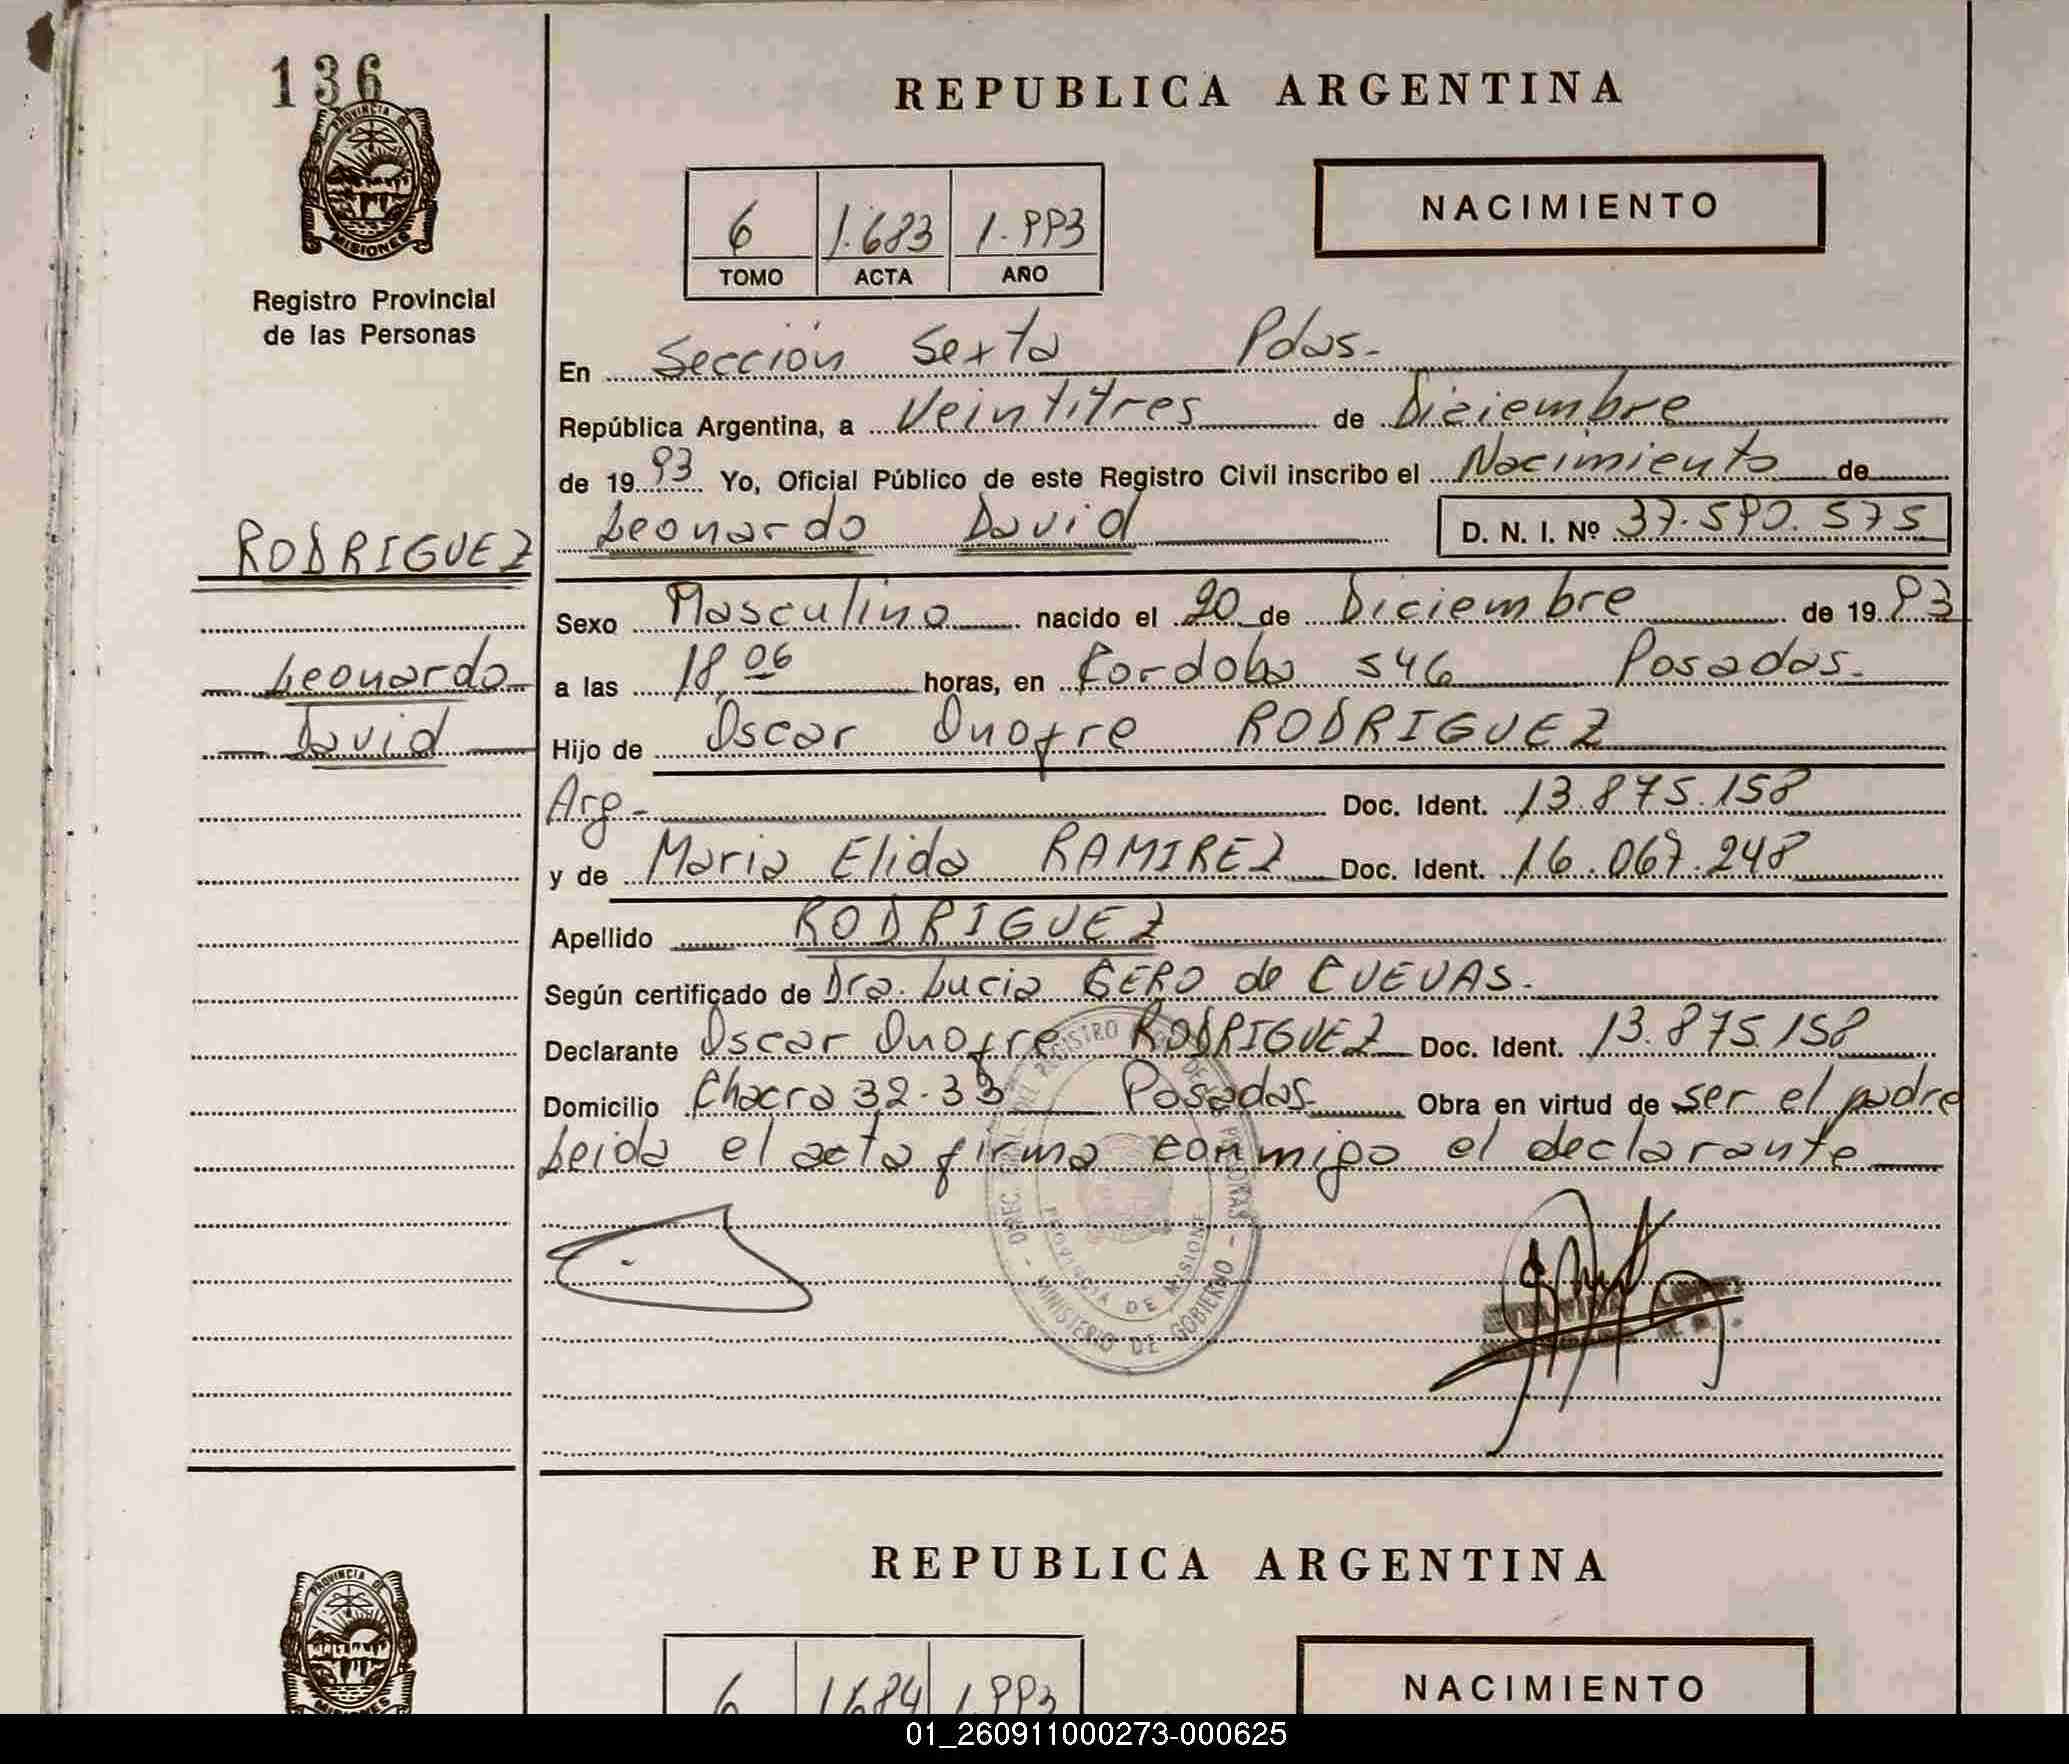 136
PROVINCIA DE
MISIONES
Registro Provincial
de las Personas
REPUBLICA ARGENTINA
NACIMIENTO
6 1.683 1.993
TOMO ACTA AÑO
En Sección Sexta Pdas.-
República Argentina, a Veintitres de Diciembre
de 1993 Yo, Oficial Público de este Registro Civil inscribo el Nacimiento de
Leonardo David D. N. I. Nº 37.590.575
RODRIGUEZ
Leonardo
David
Sexo Masculino nacido el 20 de Diciembre de 1993
a las 18,06 horas, en Cordoba 546 Posadas.-
Hijo de Oscar Onofre RODRIGUEZ
Arg.- Doc. Ident. 13.875.158
y de Maria Elida RAMIREZ Doc. Ident. 16.067.248
Apellido RODRIGUEZ
Según certificado de Dra. Lucia GERO de CUEVAS.-
Declarante Oscar Onofre RODRIGUEZ Doc. Ident. 13.875.158
Domicilio Chacra 32-33 Posadas Obra en virtud de ser el padre
Leida el acta firma conmigo el declarante
PROVINCIA DE MISIONES
MINISTERIO DE GOBIERNO
REPUBLICA ARGENTINA
PROVINCIA DE
MISIONES
6 1684 1.993
NACIMIENTO
01_260911000273-000625